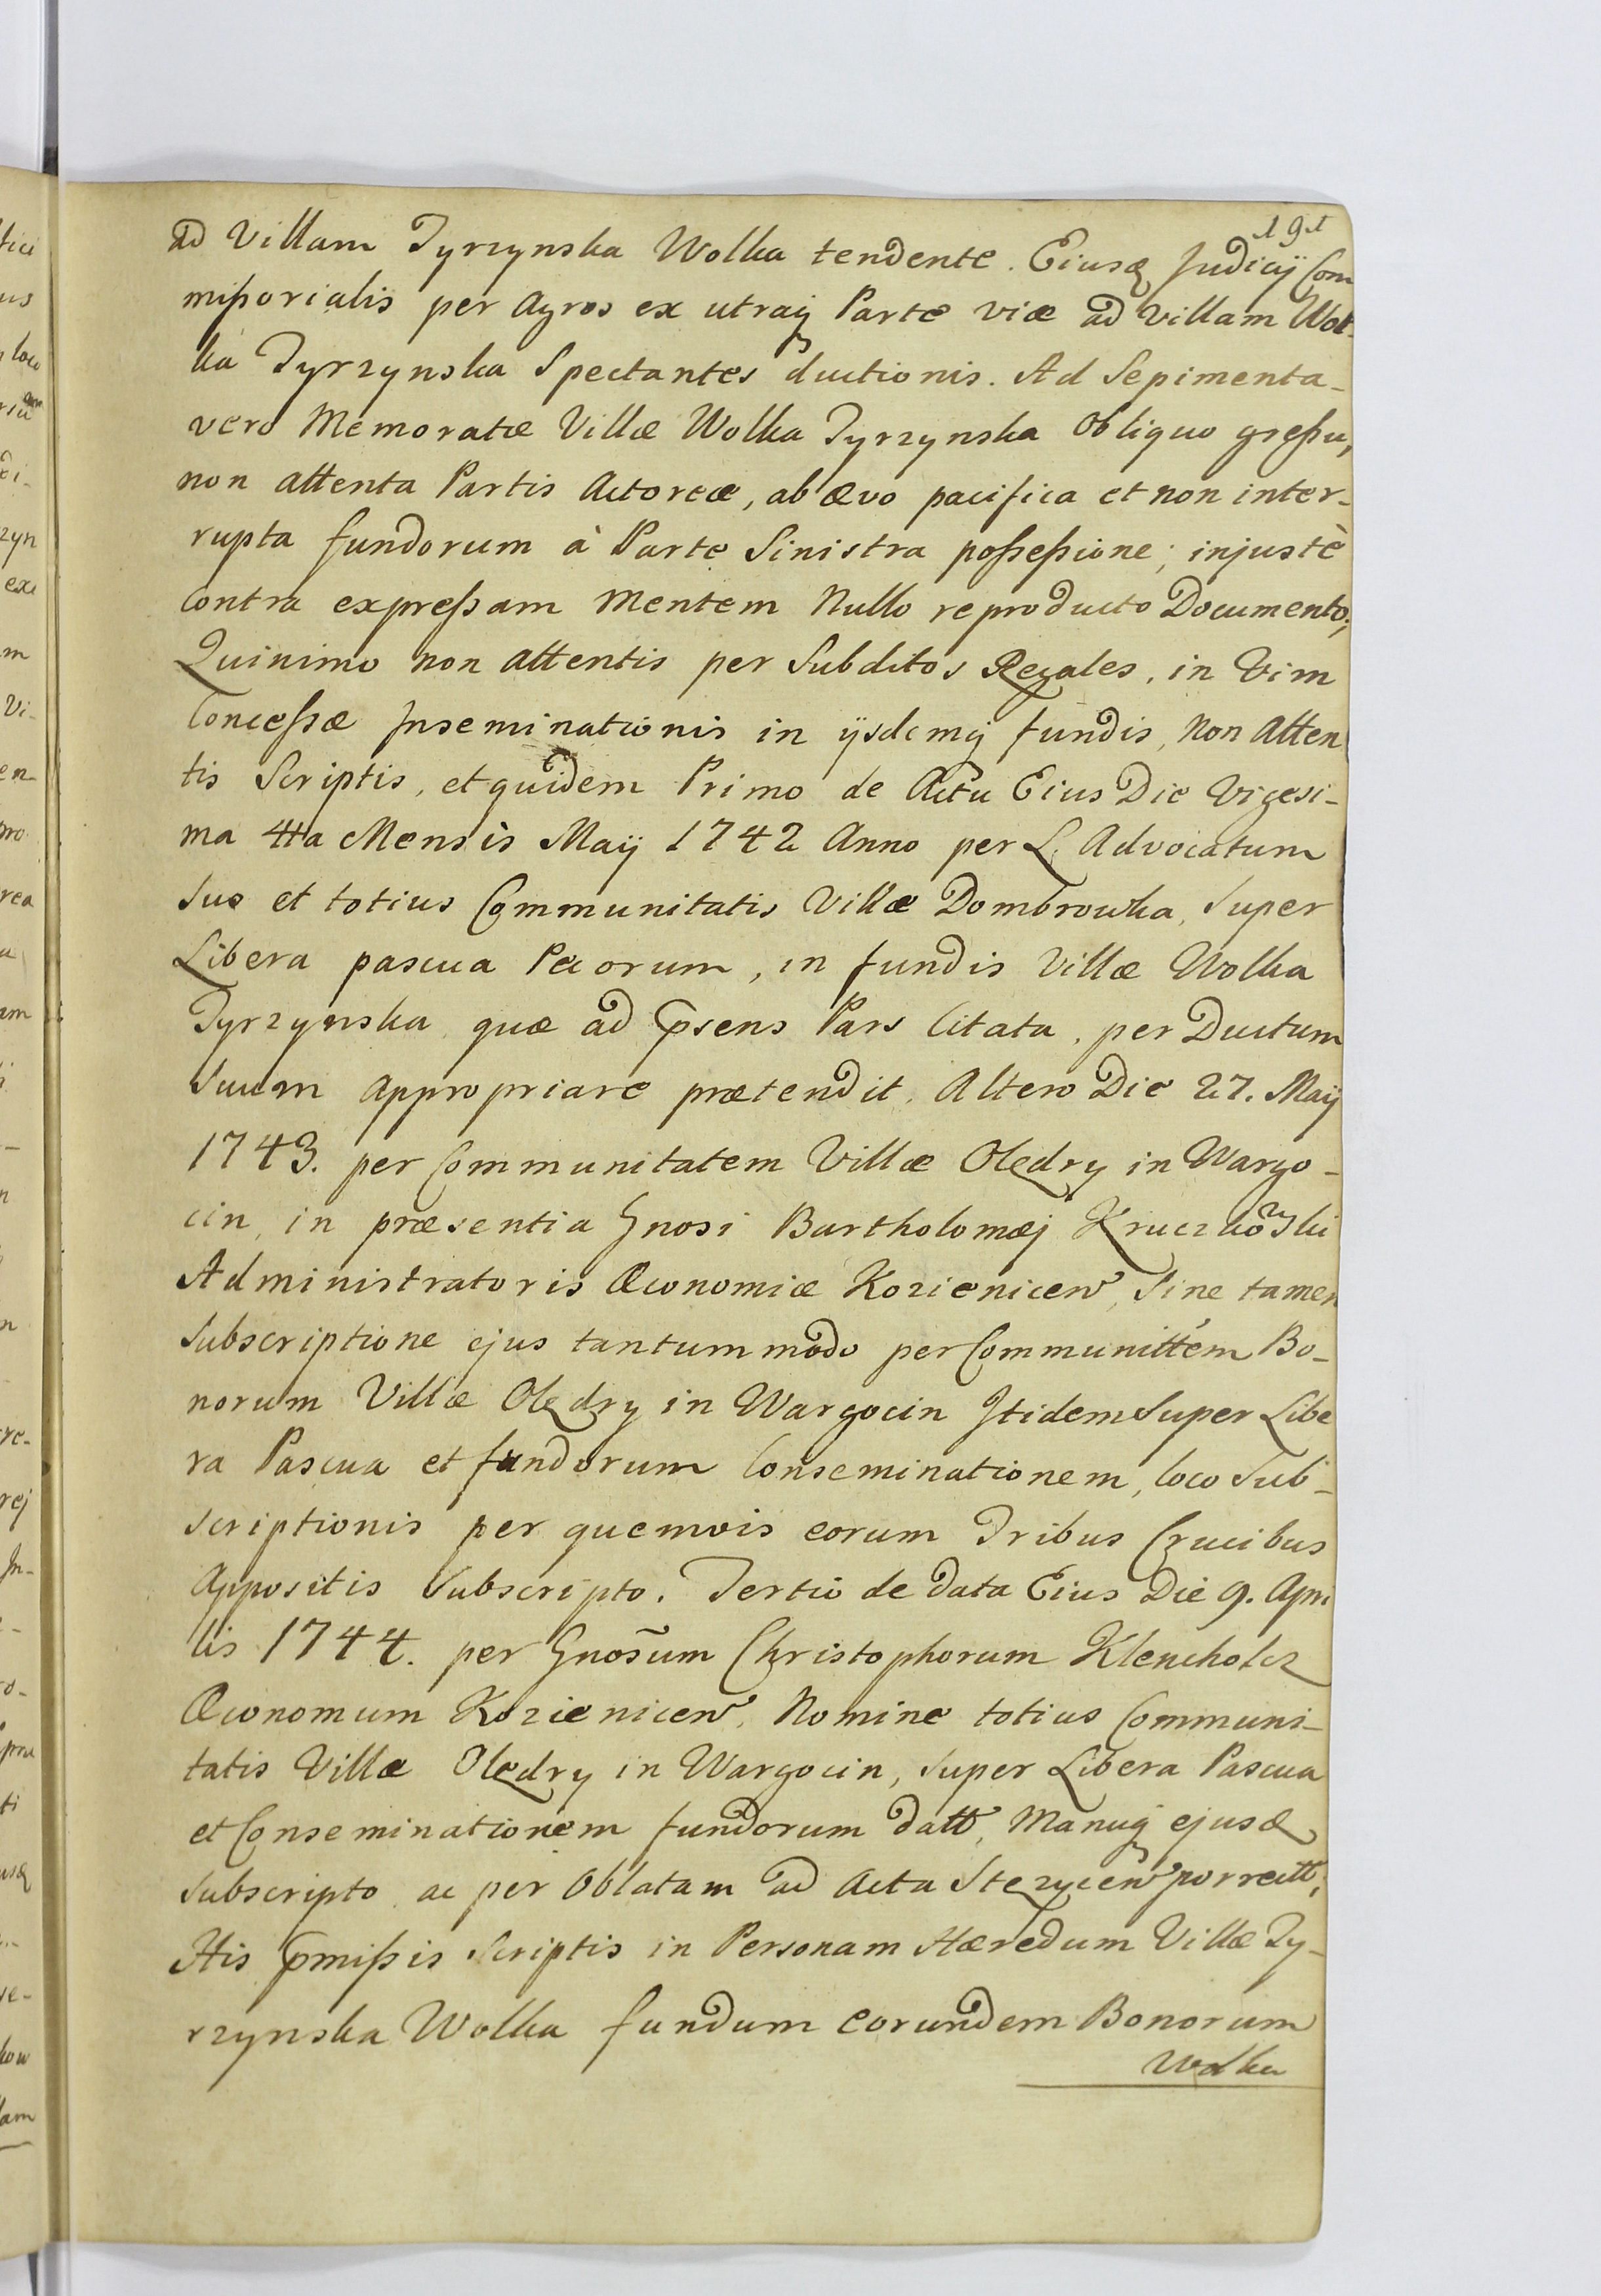 191
ad Villam Tyrzynska Wolka tendente. Eiusq Judicij Com
mißorialis per Agros ex utraq Parte viæ ad villam Wol-
ka Tyrzynska Spectantes ductionis. Ad Sepimenta-
vero Memoratæ Villæ Wolka Tyrzynska Obliquo greßu,
non attenta Partis Actoreæ, ab ævo pacifica et non inter-
rupta fundorum à Parte Sinistra poßeßione; injustè
Contra expreßam Mentem Nullo reproducto Documento;
Quinimo non attentis per Subditos Regales, in Vim
Conceßæ Inseminationis in ijsdemq fundis, Non Atten
tis Scriptis, et quidem Primo de Actu Eius Die Vigesi-
ma 4ta Mensis Maij 1742 Anno per L. Advocatum
Suo et totius Communitatis Villæ Dombrowka, Super
Libera pascua Pecorum, in fundis Villæ Wolka
Tyrzynska quæ ad psens Pars Citata, per Ductum
Suum Appropriare prætendit. Altero Die 27. Maij
1743. per Communitatem Villæ Olędry in Wargo-
cin, in præsentia Gnosi Bartholomæj Kruczkōski
Administratoris Œconomiæ Kozienicen, Sine tamen
Subscriptione ejus tantummodo per Communittem Bo-
norum Villæ Olędry in Wargocin Itidem Super Libe
ra Pascua et fundorum Conseminationem, loco Sub-
scriptionis per quemvis eorum Tribus Crucibus
Appositis Subscripto. Tertio de data Eius Die 9. Apri
lis 1744. per Gnosum Christophorum Klencholcz
Œconomum Kozienicen, Nomine totius Communi-
tatis Villæ Olędry in Wargocin, Super Libera Pascua
et Conseminationem fundorum datt, Manuq ejusd
Subscripto ac per Oblatam ad Acta Stezycen porrectt;
His pmißis Scriptis in Personam Hæredum Villæ Ty-
rzynska Wolka fundum eorundem Bonorum
Wolka